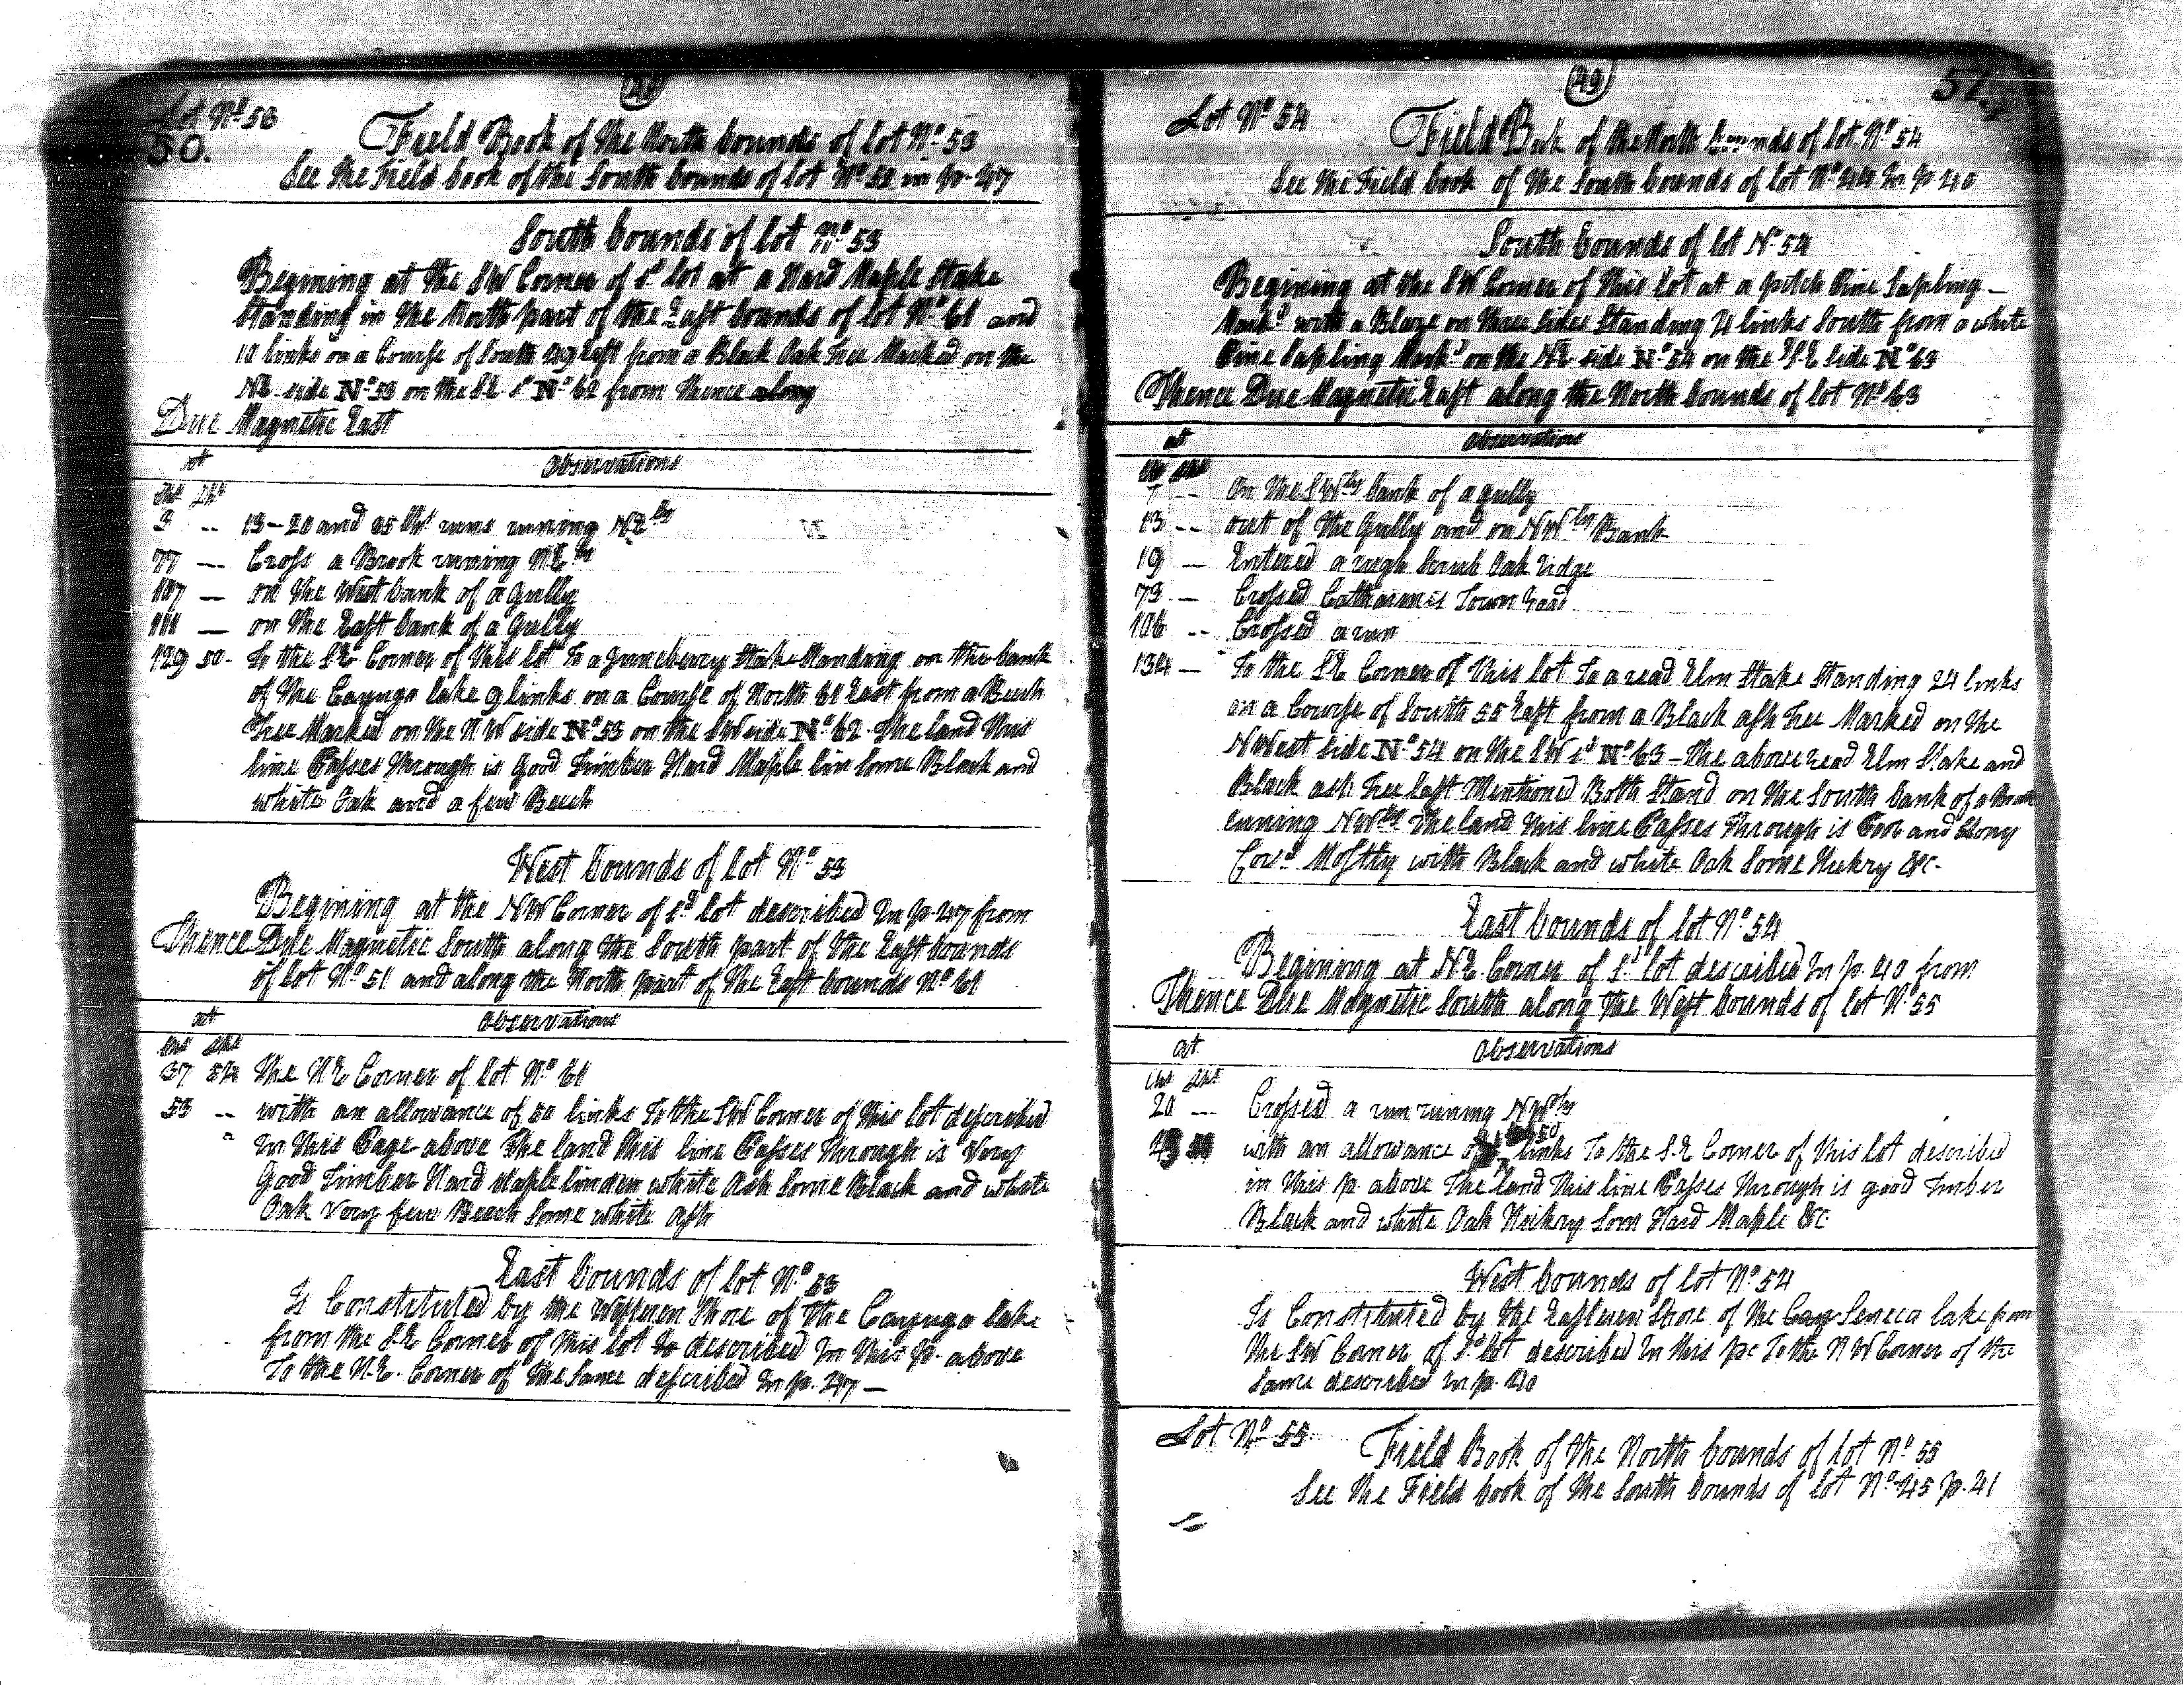 Lot No 53
50.
Field Book of the North bounds of lot No 53
See the Field book of the South bounds of lot No 52 in p. 47
South bounds of lot No 53
Begining at the SW Corner of sd lot at a Hard Maple Stake
Standing in the North part of the East bounds of lot No 61 and
10 links on a Course of South 49 East from a Black Oak Tree Marked on the
NE side No 53 on the SE sd No 62 from thence along
Due Magnetic East
at Observations
Chs Lks
3 -- 13-20 and 35 Chs runs runing NEly
77 -- Cross a Brook runing NEly
107 -- on the West bank of a Gully
111 -- on the East bank of a Gully
129 50- To the SE Corner of this lot To a Juneberry Stake Standing on the bank
of the Cayuga lake 9 links on a Course of North 61 East from a Beech
Tree Marked on the NW side No 53 on the SW side No 62. The land this
line Passes through is Good Timber Hard Maple lin Some Black and
white Oak and a few Beech
West bounds of lot No 53
Begining at the NW Corner of sd lot described In p. 47 from
Thence Due Magnetic South along the South part of the East bounds
of lot No 51 and along the North part of the East bounds No 61
at Observations
Chs Lks
37 54 The NE Corner of lot No 61
53 -- with an allowance of 50 links To the SW Corner of this lot described
In this Page above The land this line Passes through is Very
Good Timber Hard Maple linden white Ash Some Black and white
Oak Very few Beech Some white Ash
East bounds of lot No 53
Is Constituted by the Westeren Shore of the Cayuga lake
from the SE Corner of this lot To described In this p. above
To the N.E. Corner of the Same described In p. 47 —
49
51
Lot No 54
Field Book of the North bounds of lot No 54
See the Field book of the South bounds of lot No 44 In p 40
South bounds of lot No 54
Begining at the SW Corner of this lot at a pitch Pine Sapling -
Markd with a Blaze on three sides Standing 21 links South from a white
Pine Sapling Markd on the NE side No 54 on the SE side No 63
Thence Due Magnetic East along the North bounds of lot No 63
at Observations
Ch Lks
7 -- On the SWly bank of a gully
13 -- out of the Gully and on NWly Bank
19 -- Entered a rough Scrub Oak ridge
73 -- Crossed Catharines Town road
106 -- Crossed a run
134 -- To the SE Corner of this lot To a read Elm Stake Standing 24 links
on a Course of South 55 East from a Black ash Tree Marked on the
NWest side No 54 on the SW sd No 63 - The above read Elm Stake and
Black ash Tree last Mentioned Both Stand on the South bank of a
runing NWly The land this line Passes through is Poor and Stony
Covd Mostly with Black and white Oak Some Hickry &c.
East bounds of lot No 54
Begining at N.E. Corner of sd lot described In p. 40 from
Thence Due Magnetic South along the West bounds of lot No 55
at Observations
Chs Lks
20 -- Crossed a run runing NWly
with an allowance of 50 links To the S.E Corner of this lot described
in this p. above The land this line Passes through is good Timber
Black and white Oak Hickory Som Hard Maple &c
West bounds of lot No 54
Is Constituted by the Easteren Shore of the Cay Seneca lake from
the SW Corner of sd lot described In this p. To the N W Corner of the
Same described In p. 40
Lot No 55
Field Book of the North bounds of lot No 55
See the Field book of the South bounds of lot No 45 p. 41